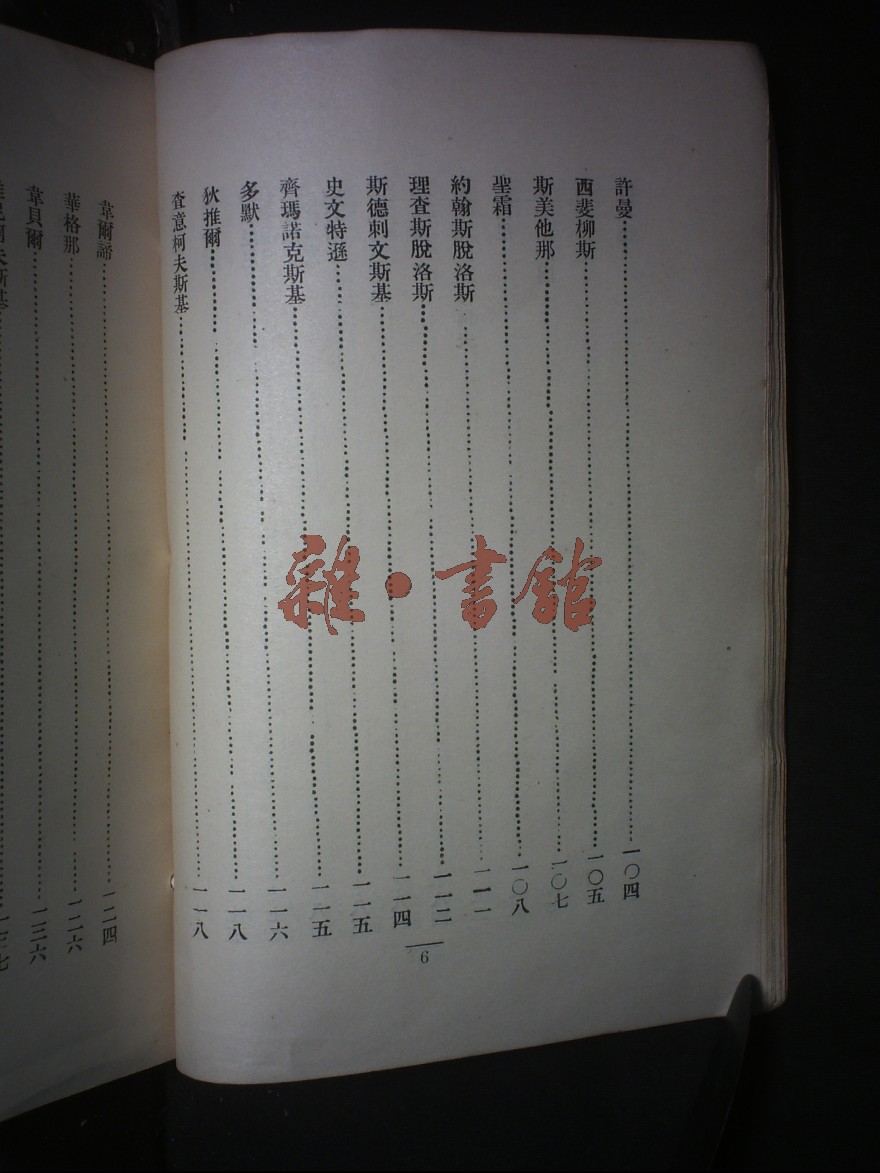 許曼……一〇四
西斐柳斯……一〇五
斯美他那……一〇七
聖霜……一〇八
約翰斯脫洛斯……一一一
理查斯脫洛斯……一一二
斯德刺文斯基……一一四
史文特遜……一一五
齊瑪諾克斯基……一一五
多默……一一六
狄推爾……一一八
查意柯夫斯基……一一八
6
韋爾諦……一二四
華格那……一二六
韋貝爾……一三六
雜·書館